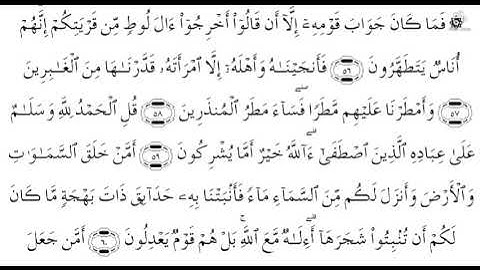 ۞ فَمَا كَانَ جَوَابَ قَوْمِهِۦٓ إِلَّآ أَن قَالُوٓاْ أَخْرِجُوٓاْ ءَالَ لُوطٍ مِّن قَرْيَتِكُمْ إِنَّهُمْ
أُنَاسٌ يَتَطَهَّرُونَ ٥٦ فَأَنجَيْنَٰهُ وَأَهْلَهُۥٓ إِلَّا ٱمْرَأَتَهُۥ قَدَّرْنَٰهَا مِنَ ٱلْغَٰبِرِينَ
٥٧ وَأَمْطَرْنَا عَلَيْهِم مَّطَرًا ۖ فَسَآءَ مَطَرُ ٱلْمُنذَرِينَ ٥٨ قُلِ ٱلْحَمْدُ لِلَّهِ وَسَلَٰمٌ
عَلَىٰ عِبَادِهِ ٱلَّذِينَ ٱصْطَفَىٰٓ ۗ ءَآللَّهُ خَيْرٌ أَمَّا يُشْرِكُونَ ٥٩ أَمَّنْ خَلَقَ ٱلسَّمَٰوَٰتِ
وَٱلْأَرْضَ وَأَنزَلَ لَكُم مِّنَ ٱلسَّمَآءِ مَآءً فَأَنۢبَتْنَا بِهِۦ حَدَآئِقَ ذَاتَ بَهْجَةٍ مَّا كَانَ
لَكُمْ أَن تُنۢبِتُواْ شَجَرَهَآ ۗ أَءِلَٰهٌ مَّعَ ٱللَّهِ ۚ بَلْ هُمْ قَوْمٌ يَعْدِلُونَ ٦٠ أَمَّن جَعَلَ